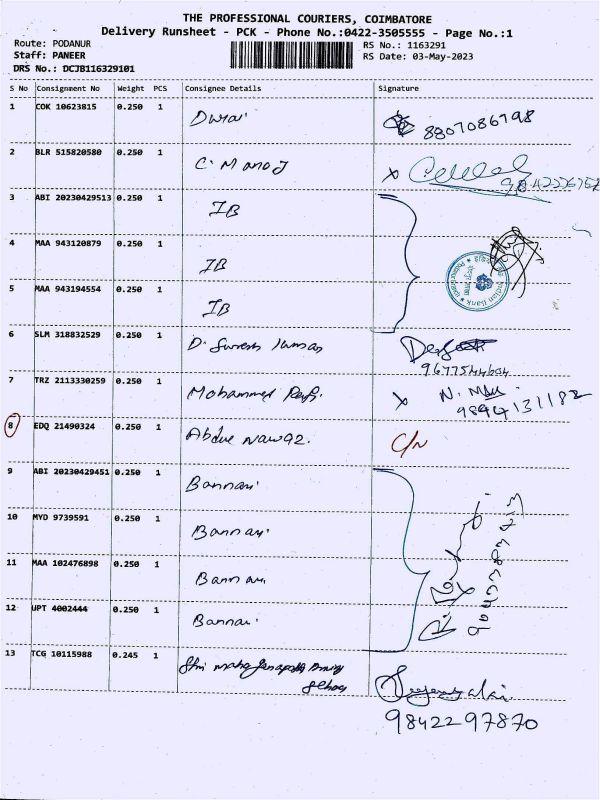 THE PROFESSIONAL COURIERS, COIMBATORE
Delivery Runsheet - PCK - Phone No.:0422-3505555 - Page No.:1
Route: PODANUR
RS No.: 1163291
Staff: PANEER
RS Date: 03-May-2023
DRS No.: DCJB116329101
S No Consignment No Weight PCS Consignee Details Signature
1 COK 10623815 0.250 1 Durai 8807086798
2 BLR 515820580 0.250 1 C. Manoj X
3 ABI 20230429513 0.250 1 IB
4 MAA 943120879 0.250 1 IB
Indian Bank
5 MAA 943194554 0.250 1 IB
6 SLM 318832529 0.250 1 D. Suresh Kumar
9677544604
7 TRZ 2113330259 0.250 1 Mohammed Rafi. X
9894131182
8 EDQ 21490324 0.250 1 Abdul Nawaz. C/N
9 ABI 20230429451 0.250 1 Bannari
10 MYD 9739591 0.250 1 Bannari
11 MAA 102476898 0.250 1 Bannari
12 UPT 4002444 0.250 1 Bannari
13 TCG 10115988 0.245 1 Shri Maha Ganapathy
9842297870